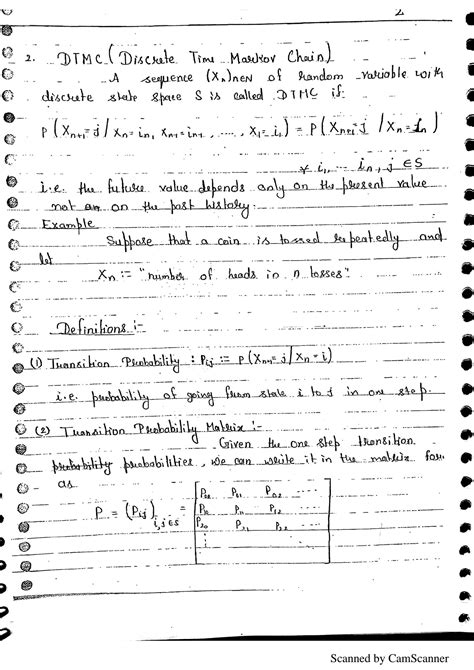 2
2. DTMC (Discrete Time Markov Chain)
A sequence (Xn)n∈N of random variable with
discrete state space S is called DTMC if:
P(Xn+1=j / Xn=in, Xn-1=in-1, ...., X1=i1) = P(Xn+1=j / Xn=in)
∀ i1, ... in, j ∈ S
i.e. the future value depends only on the present value
not on the past history.
Example
Suppose that a coin is tossed repeatedly and
let
Xn := "number of heads in n tosses".
Definitions :-
(1) Transition Probability : Pij := P(Xn+1=j / Xn=i)
i.e. probability of going from state i to j in one step.
(2) Transition Probability Matrix :-
Given the one step transition
probability probabilities, we can write it in the matrix form
as
P00 P01 P02 ....
P = (Pij)i,j∈S = P10 P11 P12 ....
P20 P21 P22 ....
⋮
Scanned by CamScanner